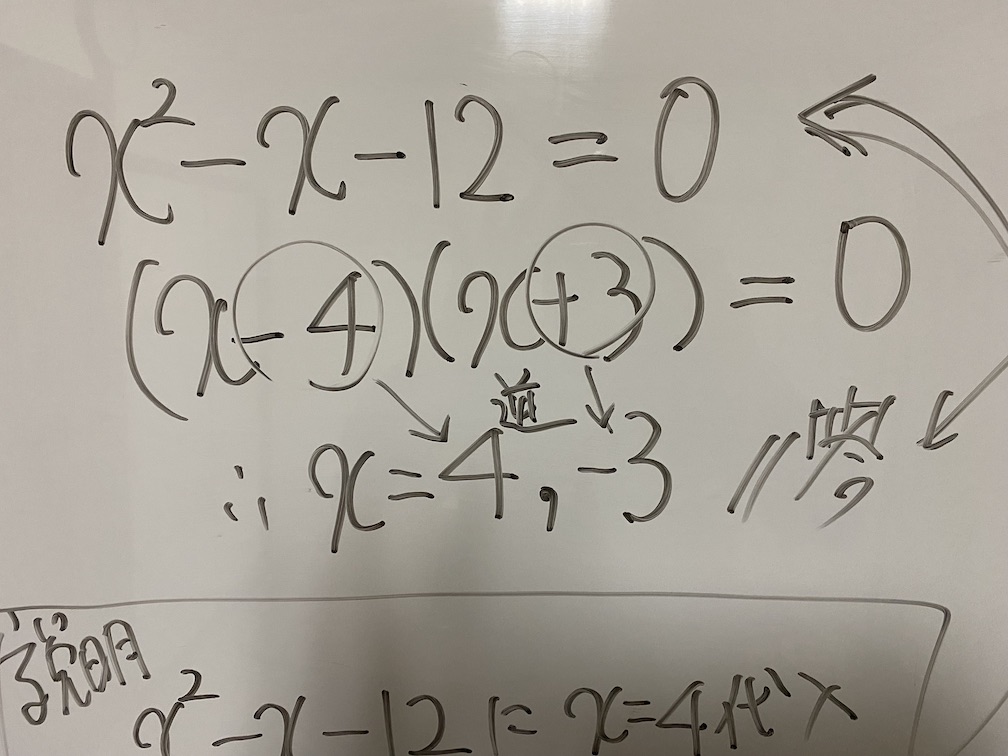 x² - x - 12 = 0
(x - 4)(x + 3) = 0
逆
∴ x = 4, -3 //
説明
x² - x - 12 に x = 4 代入